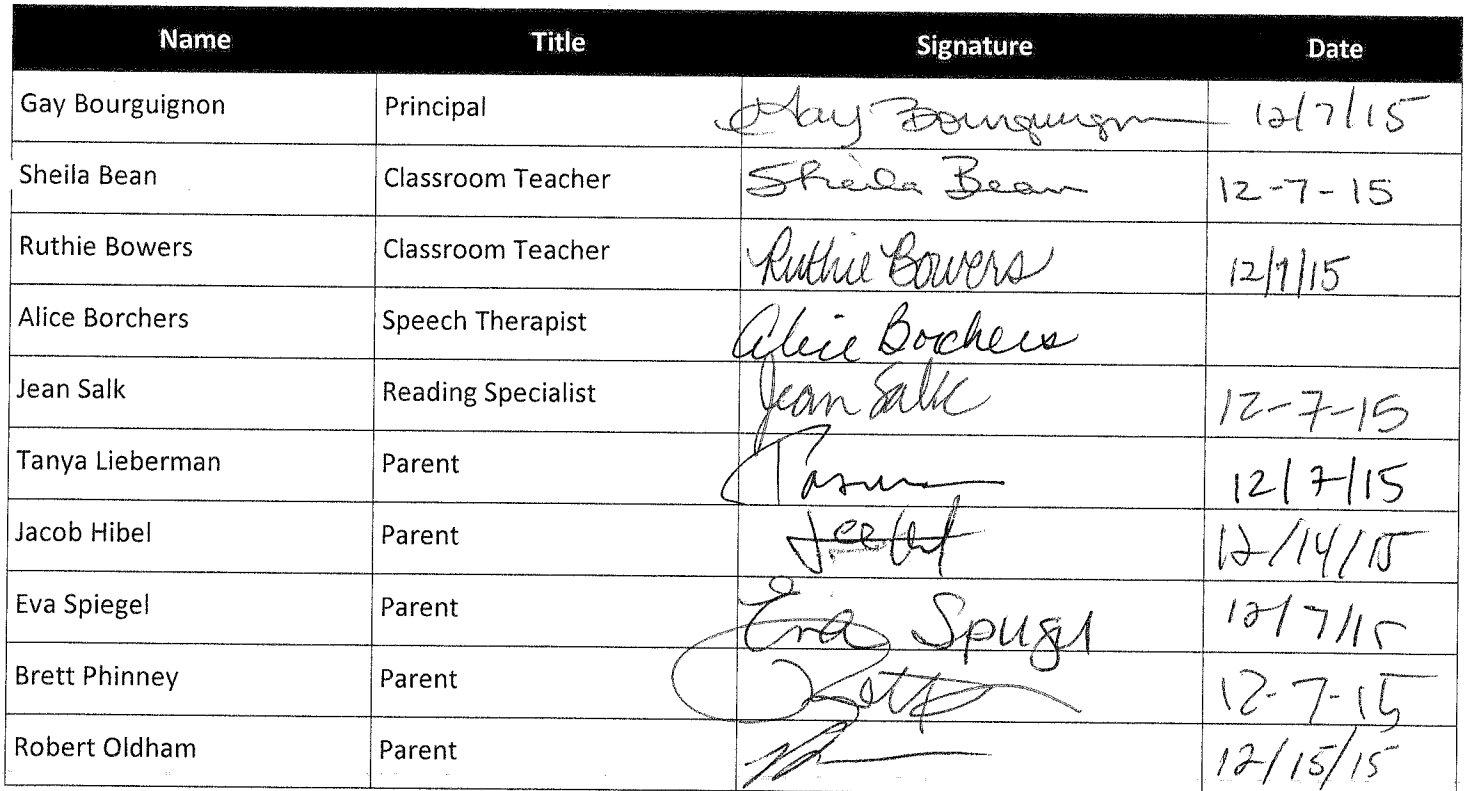 Name Title Signature Date
Gay Bourguignon Principal Gay Bourguignon 12/7/15
Sheila Bean Classroom Teacher Sheila Bean 12-7-15
Ruthie Bowers Classroom Teacher Ruthie Bowers 12/7/15
Alice Borchers Speech Therapist Alice Borchers
Jean Salk Reading Specialist Jean Salk 12-7-15
Tanya Lieberman Parent 12/7/15
Jacob Hibel Parent 12/14/15
Eva Spiegel Parent Eva Spiegel 12/7/15
Brett Phinney Parent 12-7-15
Robert Oldham Parent 12/15/15